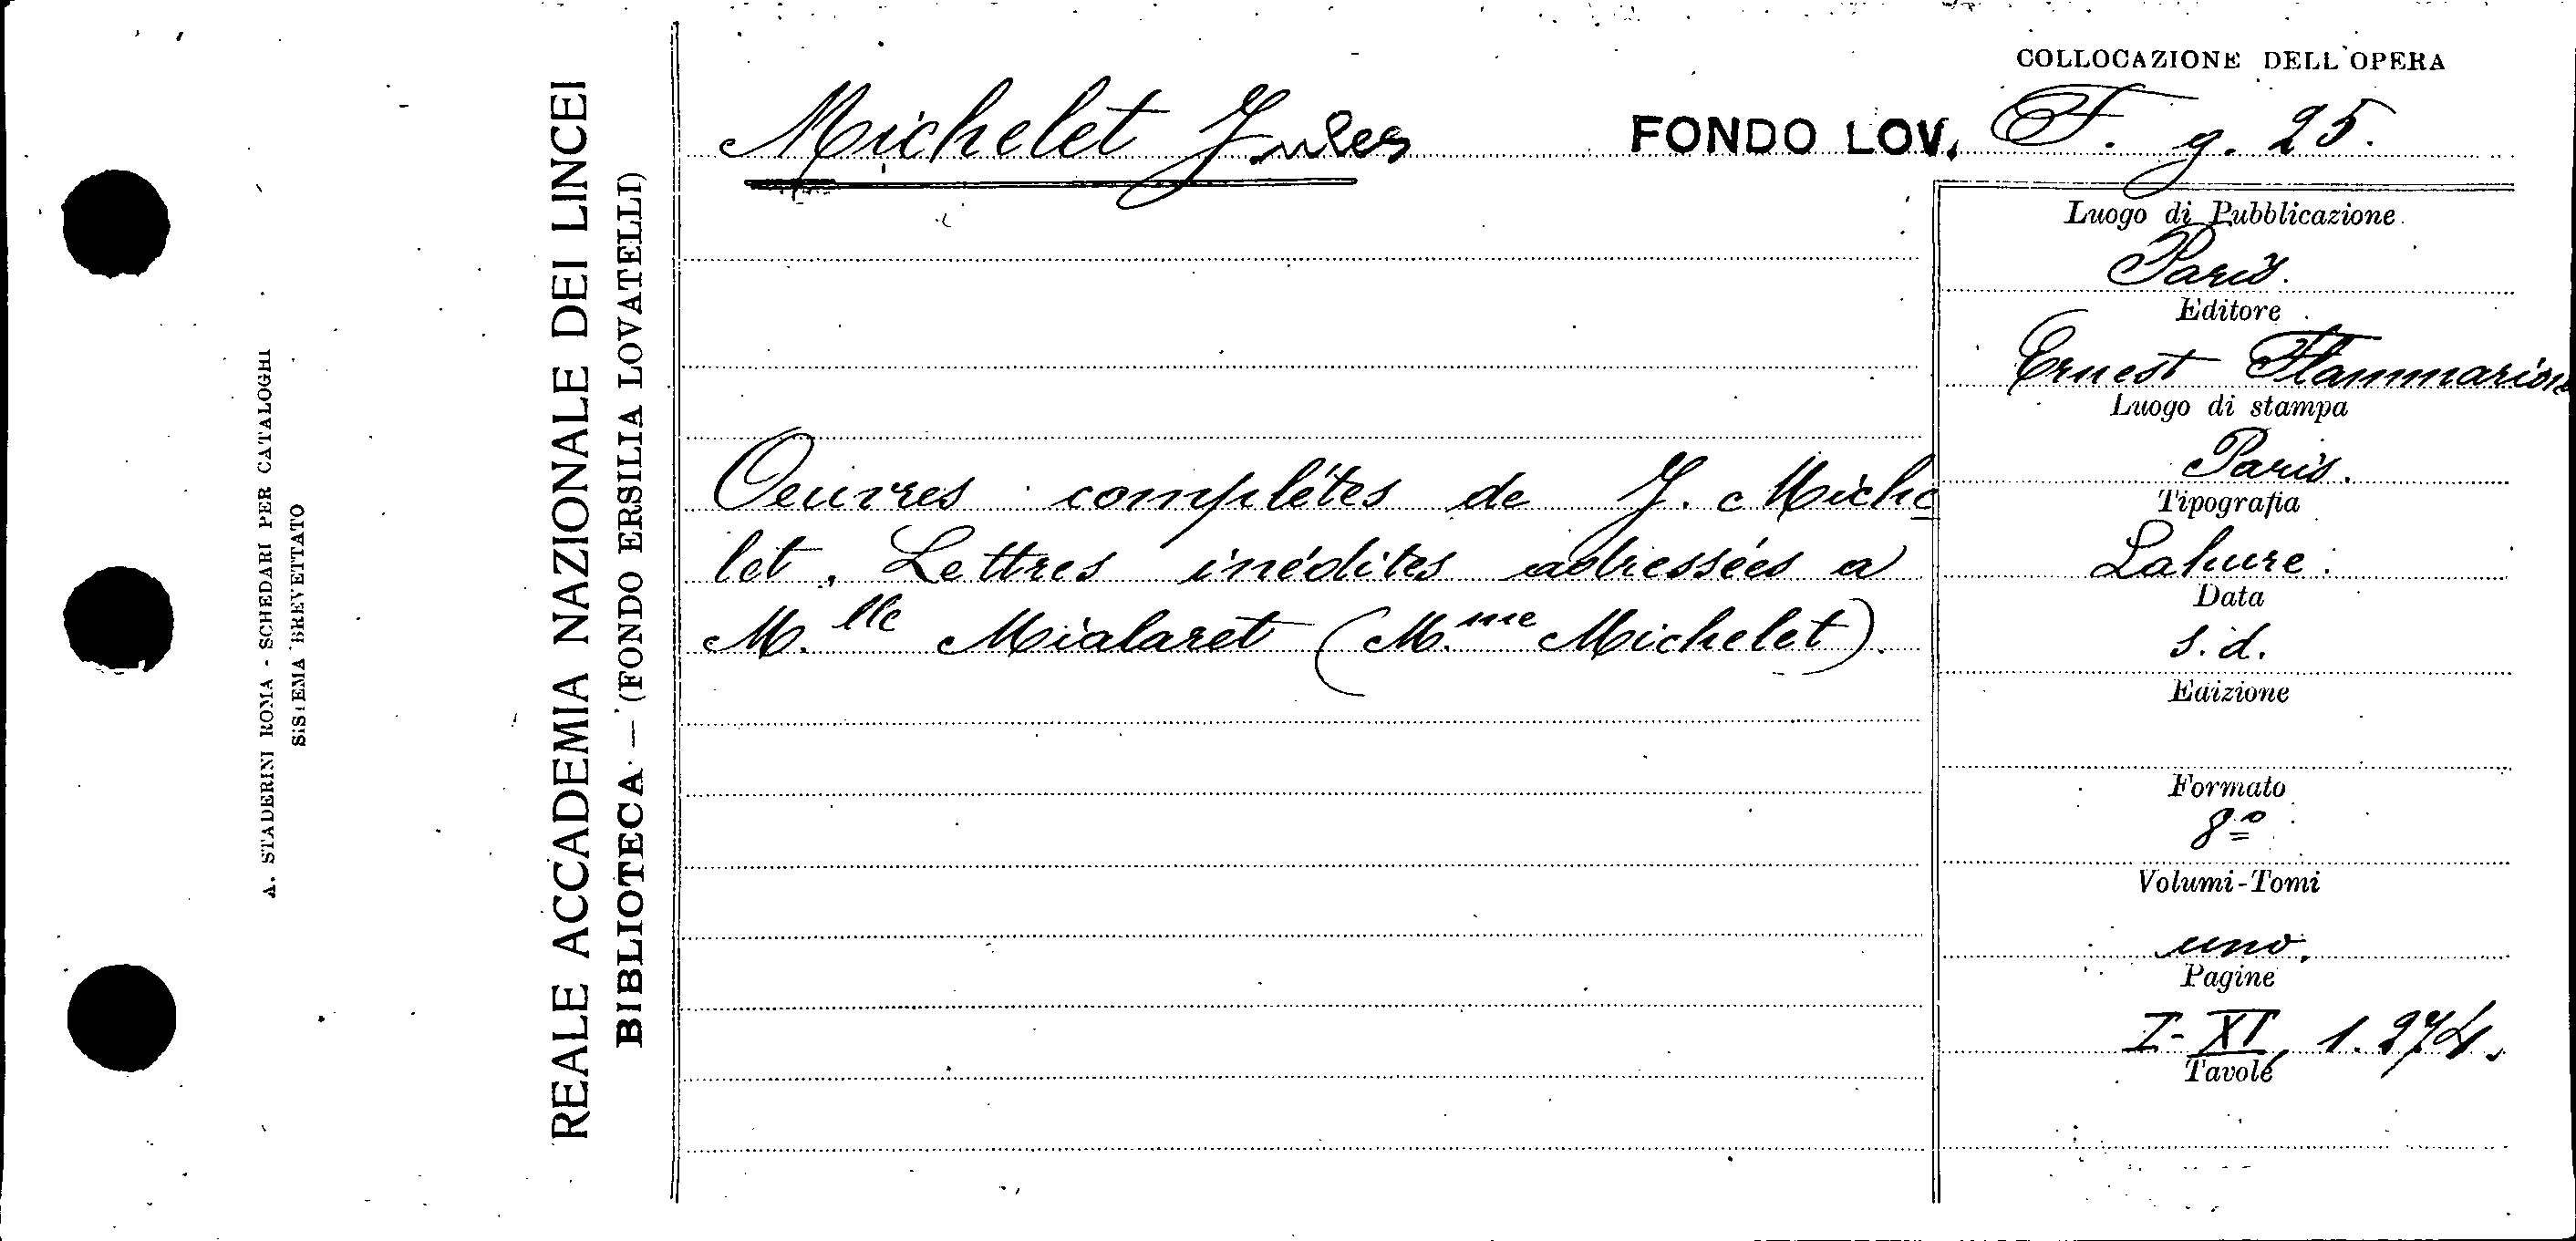 A. STADERINI ROMA - SCHEDARI PER CATALOGHI
SISTEMA BREVETTATO
REALE ACCADEMIA NAZIONALE DEI LINCEI
BIBLIOTECA — (FONDO ERSILIA LOVATELLI)
Michelet Jules
COLLOCAZIONE DELL'OPERA
FONDO LOV. F. g. 25.
Oeuvres complètes de J. Miche
let. Lettres inédites adressées a
M.lle Mialaret (M.me Michelet).
Luogo di Pubblicazione
Paris.
Editore
Ernest Flammarion
Luogo di stampa
Paris.
Tipografia
Lahure.
Data
s. d.
Edizione
Formato
8º
Volumi-Tomi
uno.
Pagine
I-XI, 1. 274.
Tavole